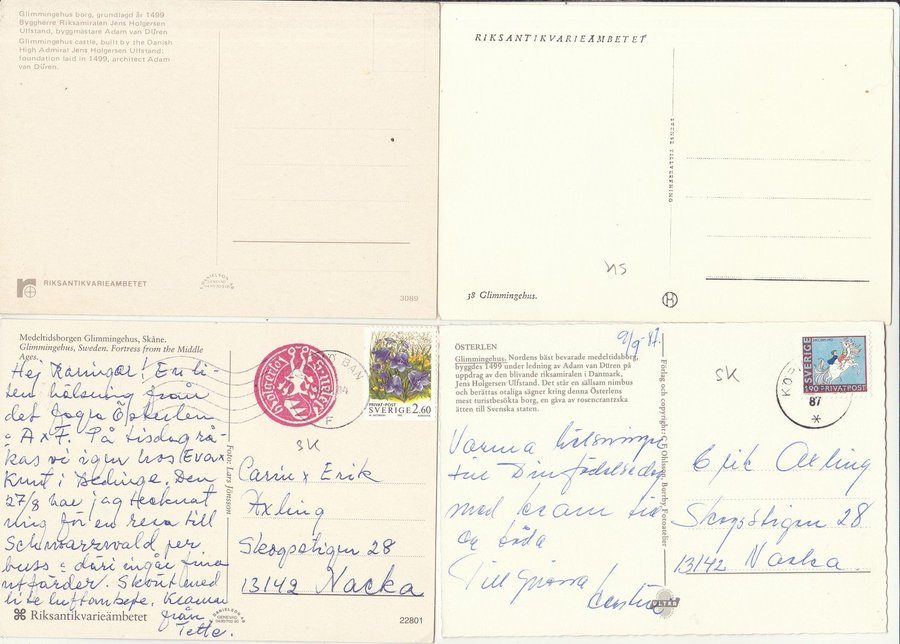 Glimmingehus borg, grundlagd år 1499
Byggherre Riksamiralen Jens Holgersen
Ulfstand, byggmästare Adam van Düren
Glimmingehus castle, built by the Danish
High Admiral Jens Holgersen Ulfstand;
foundation laid in 1499, architect Adam
van Düren.
RIKSANTIKVARIEÄMBETET
3089
RIKSANTIKVARIEÄMBETET
NS
38 Glimmingehus.
H
Medeltidsborgen Glimmingehus, Skåne.
Glimmingehus, Sweden. Fortress from the Middle
Ages.
Hej Karingar! En li-
ten hälsning från
det fagra Österlen
A x F. På tisdag rå-
kas vi igen hos Eva x
Knut i Bedinge. Den
27/8 har jag
ning för en resa till
Schwarzwald per
buss - däri ingår fina
utfärder. Skönt med
lite luftombyte. Kramar
från
Tette.
Riksantikvarieämbetet
DANIELSON
22801
Foto: Lars Jönsson
PRIVAT-POST
SVERIGE 2.60
F
SK
Carin x Erik
Axling
Skogsstigen 28
13142 Nacka
ÖSTERLEN
Glimmingehus. Nordens bäst bevarade medeltidsborg,
byggdes 1499 under ledning av Adam van Düren på
uppdrag av den blivande riksamiralen i Danmark,
Jens Holgersen Ulfstand. Det står en sällsam nimbus
och berättas otaliga sägner kring denna Österlens
mest turistbesökta borg, en gåva av rosencrantzska
ätten till Svenska staten.
9/9 87.
Varma hälsningar
till Din födelsedag
med kram till
Er båda
Till
Förlag och copyright: C F Ohlsson, Borrby, Fotoateljer
ULTRA
SK
SVERIGE
190 PRIVATPOST
87
Erik Axling
Skogsstigen 28
13142 Nacka.